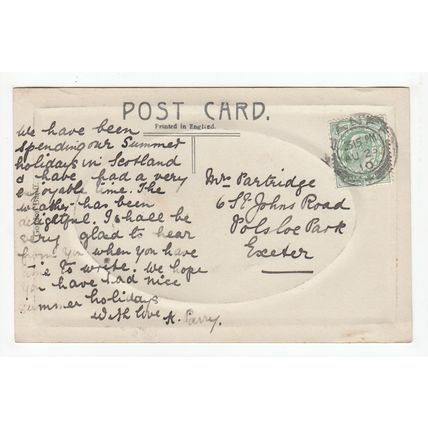 POST CARD.
Printed in England.
We have been
spending our Summer
holidays in Scotland
& have had a very
enjoyable time. The
weather has been
delightful. I shall be
very glad to hear
from you when you have
time to write. We hope
you have had nice
summer holidays
With love K. Parry.
Mrs Partridge
6 St Johns Road
Polsloe Park
Exeter